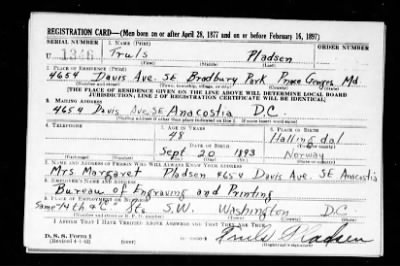 REGISTRATION CARD—(Men born on or after April 28, 1877 and on or before February 16, 1897)
SERIAL NUMBER 1. NAME (Print) ORDER NUMBER
U 1346 Truls Pladsen
(First) (Middle) (Last)
2. PLACE OF RESIDENCE (Print)
4654 Davis Ave. SE Bradbury Park Prince Georges Md
(Number and street) (Town, township, village, or city) (County) (State)
[THE PLACE OF RESIDENCE GIVEN ON THE LINE ABOVE WILL DETERMINE LOCAL BOARD
JURISDICTION; LINE 2 OF REGISTRATION CERTIFICATE WILL BE IDENTICAL]
3. MAILING ADDRESS
4654 Davis Ave. SE Anacostia D.C.
[Mailing address if other than place indicated on line 2. If same insert word same]
4. TELEPHONE 5. AGE IN YEARS 6. PLACE OF BIRTH
48 Hallingdal
DATE OF BIRTH (Town or county)
Sept 20 1893 Norway
(Exchange) (Number) (Mo.) (Day) (Yr.) (State or country)
7. NAME AND ADDRESS OF PERSON WHO WILL ALWAYS KNOW YOUR ADDRESS
Mrs Margaret Pladsen 4654 Davis Ave. SE Anacostia
8. EMPLOYER'S NAME AND ADDRESS
Bureau of Engraving and Printing
9. PLACE OF EMPLOYMENT OR BUSINESS
Same 14th & "C" Sts S.W. Washington D.C.
(Number and street or R. F. D. number) (Town) (County) (State)
I AFFIRM THAT I HAVE VERIFIED ABOVE ANSWERS AND THAT THEY ARE TRUE.
D. S. S. Form 1
(Revised 4-1-42) Truls Pladsen